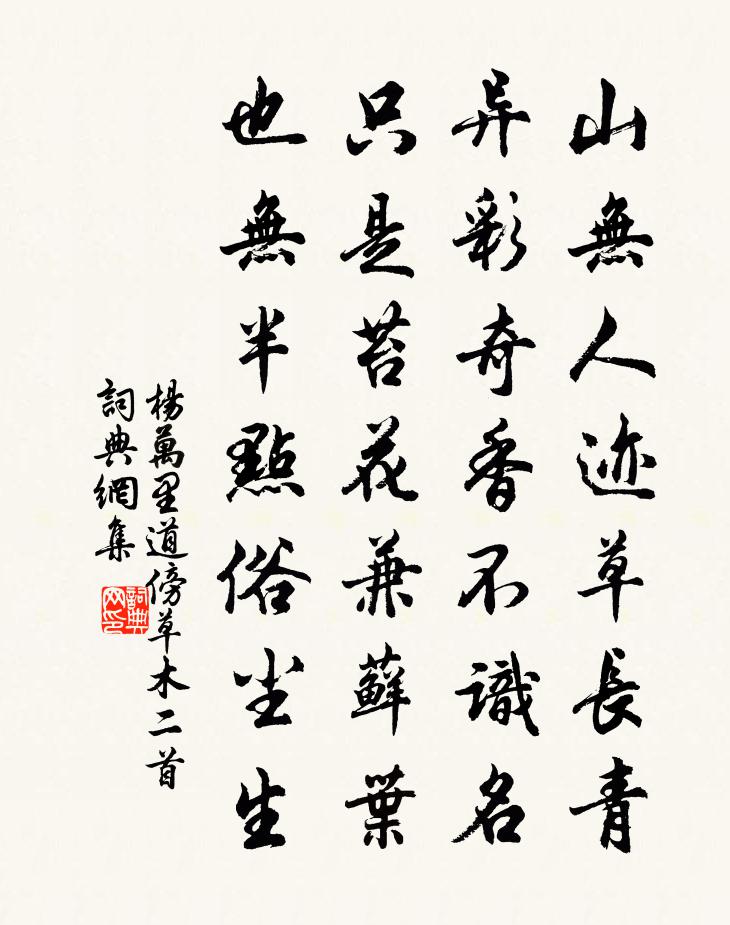 山無人迹草長青
异彩奇香不識名
只是苔花兼蘚葉
也無半點俗尘生
楊萬里道傍草木二首
詞典網集
詞典网印